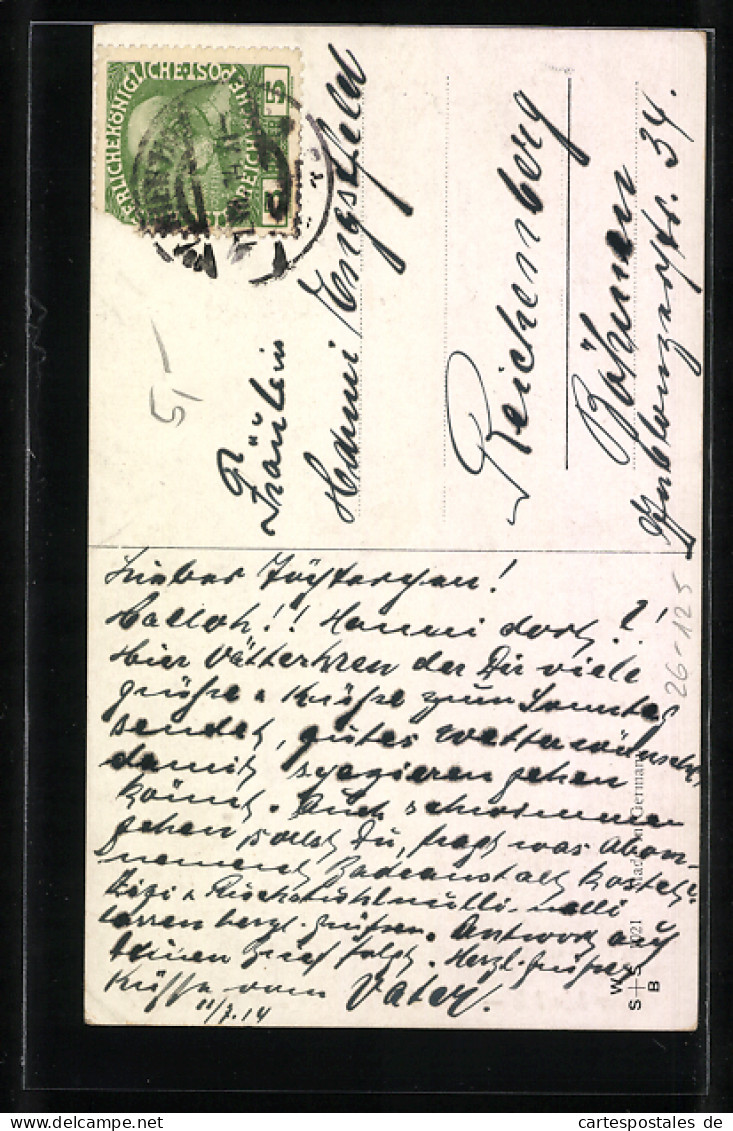 KAISERLICHE KÖNIGLICHE POST
5
Fräulein
Hanni Engsfeld
Reichenberg
Böhmen
Gablonzerstr. 34.
5,-
26-125
Liebes Töchterchen!
Halloh!! Hanni dort?!
Hier Vätterchen der Dir viele
Grüße & Küsse zum Sonntag
sendet, gutes Wetter wünscht,
damit spazieren gehen
könnt. Auch schwimmen
gehen sollst Du, fragt was Abon-
nement Badeanstalt kostet?
lassen herzl. grüßen. Antwort auf
Brief folgt. Herzl. Grüße
Küsse vom Vater.
11/7.14
W
S+S
B
Made in Germany
cartespostales de
www.cartespostales.de